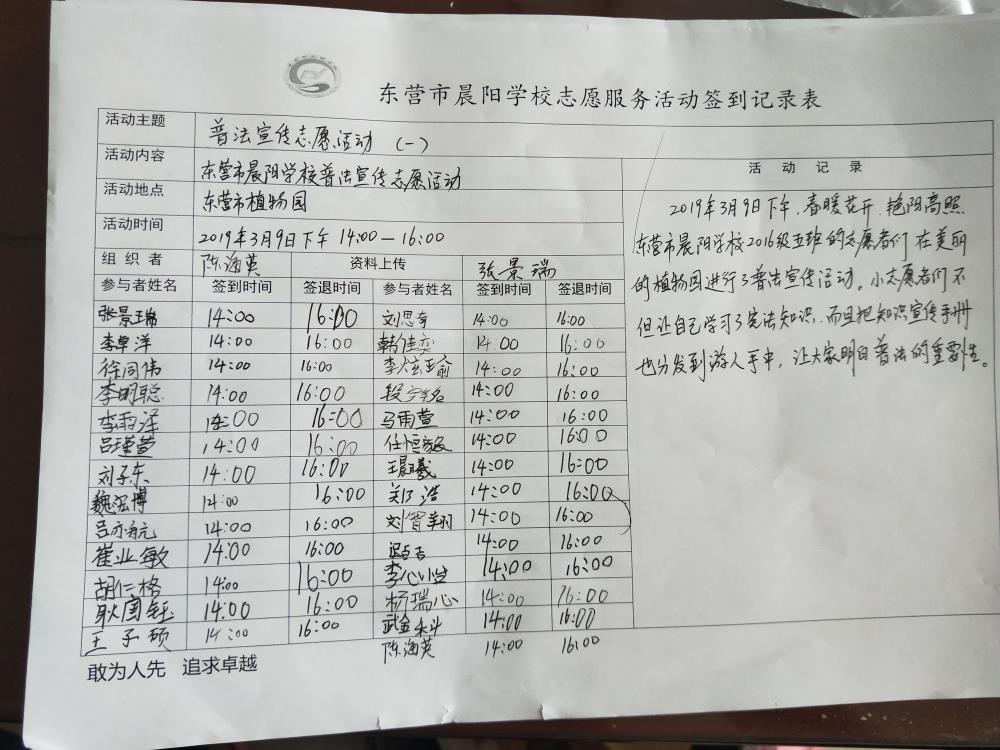 东营市晨阳学校志愿服务活动签到记录表
活动主题 普法宣传志愿活动 (一)
活动内容 东营市晨阳学校普法宣传志愿活动
活动地点 东营市植物园
活动时间 2019年3月9日下午 14:00—16:00
组织者 陈海英 资料上传 张景瑞
参与者姓名 签到时间 签退时间 参与者姓名 签到时间 签退时间
张景瑞 14:00 16:00 刘思奇 14:00 16:00
李卓洋 14:00 16:00 韩佳奕 14:00 16:00
徐同伟 14:00 16:00 李炫瑜 14:00 16:00
李明聪 14:00 16:00 14:00 16:00
李雨泽 14:00 16:00 马雨萱 14:00 16:00
吕瑾萱 14:00 16:00 任恒毅 14:00 16:00
刘子东 14:00 16:00 王晨曦 14:00 16:00
魏泓博 14:00 16:00 郑浩 14:00 16:00
吕亦航 14:00 16:00 14:00 16:00
崔业敏 14:00 16:00 14:00 16:00
胡仁格 14:00 16:00 14:00 16:00
耿国钰 14:00 16:00 杨瑞心 14:00 16:00
王子硕 14:00 16:00 14:00 16:00
陈海英 14:00 16:00
敢为人先 追求卓越
活动记录
2019年3月9日下午,春暖花开,艳阳高照
东营市晨阳学校2016级五班的志愿者们在美丽
的植物园进行了普法宣传活动。小志愿者们不
但让自己学习了宪法知识,而且把知识宣传手册
也分发到游人手中,让大家明白普法的重要性。